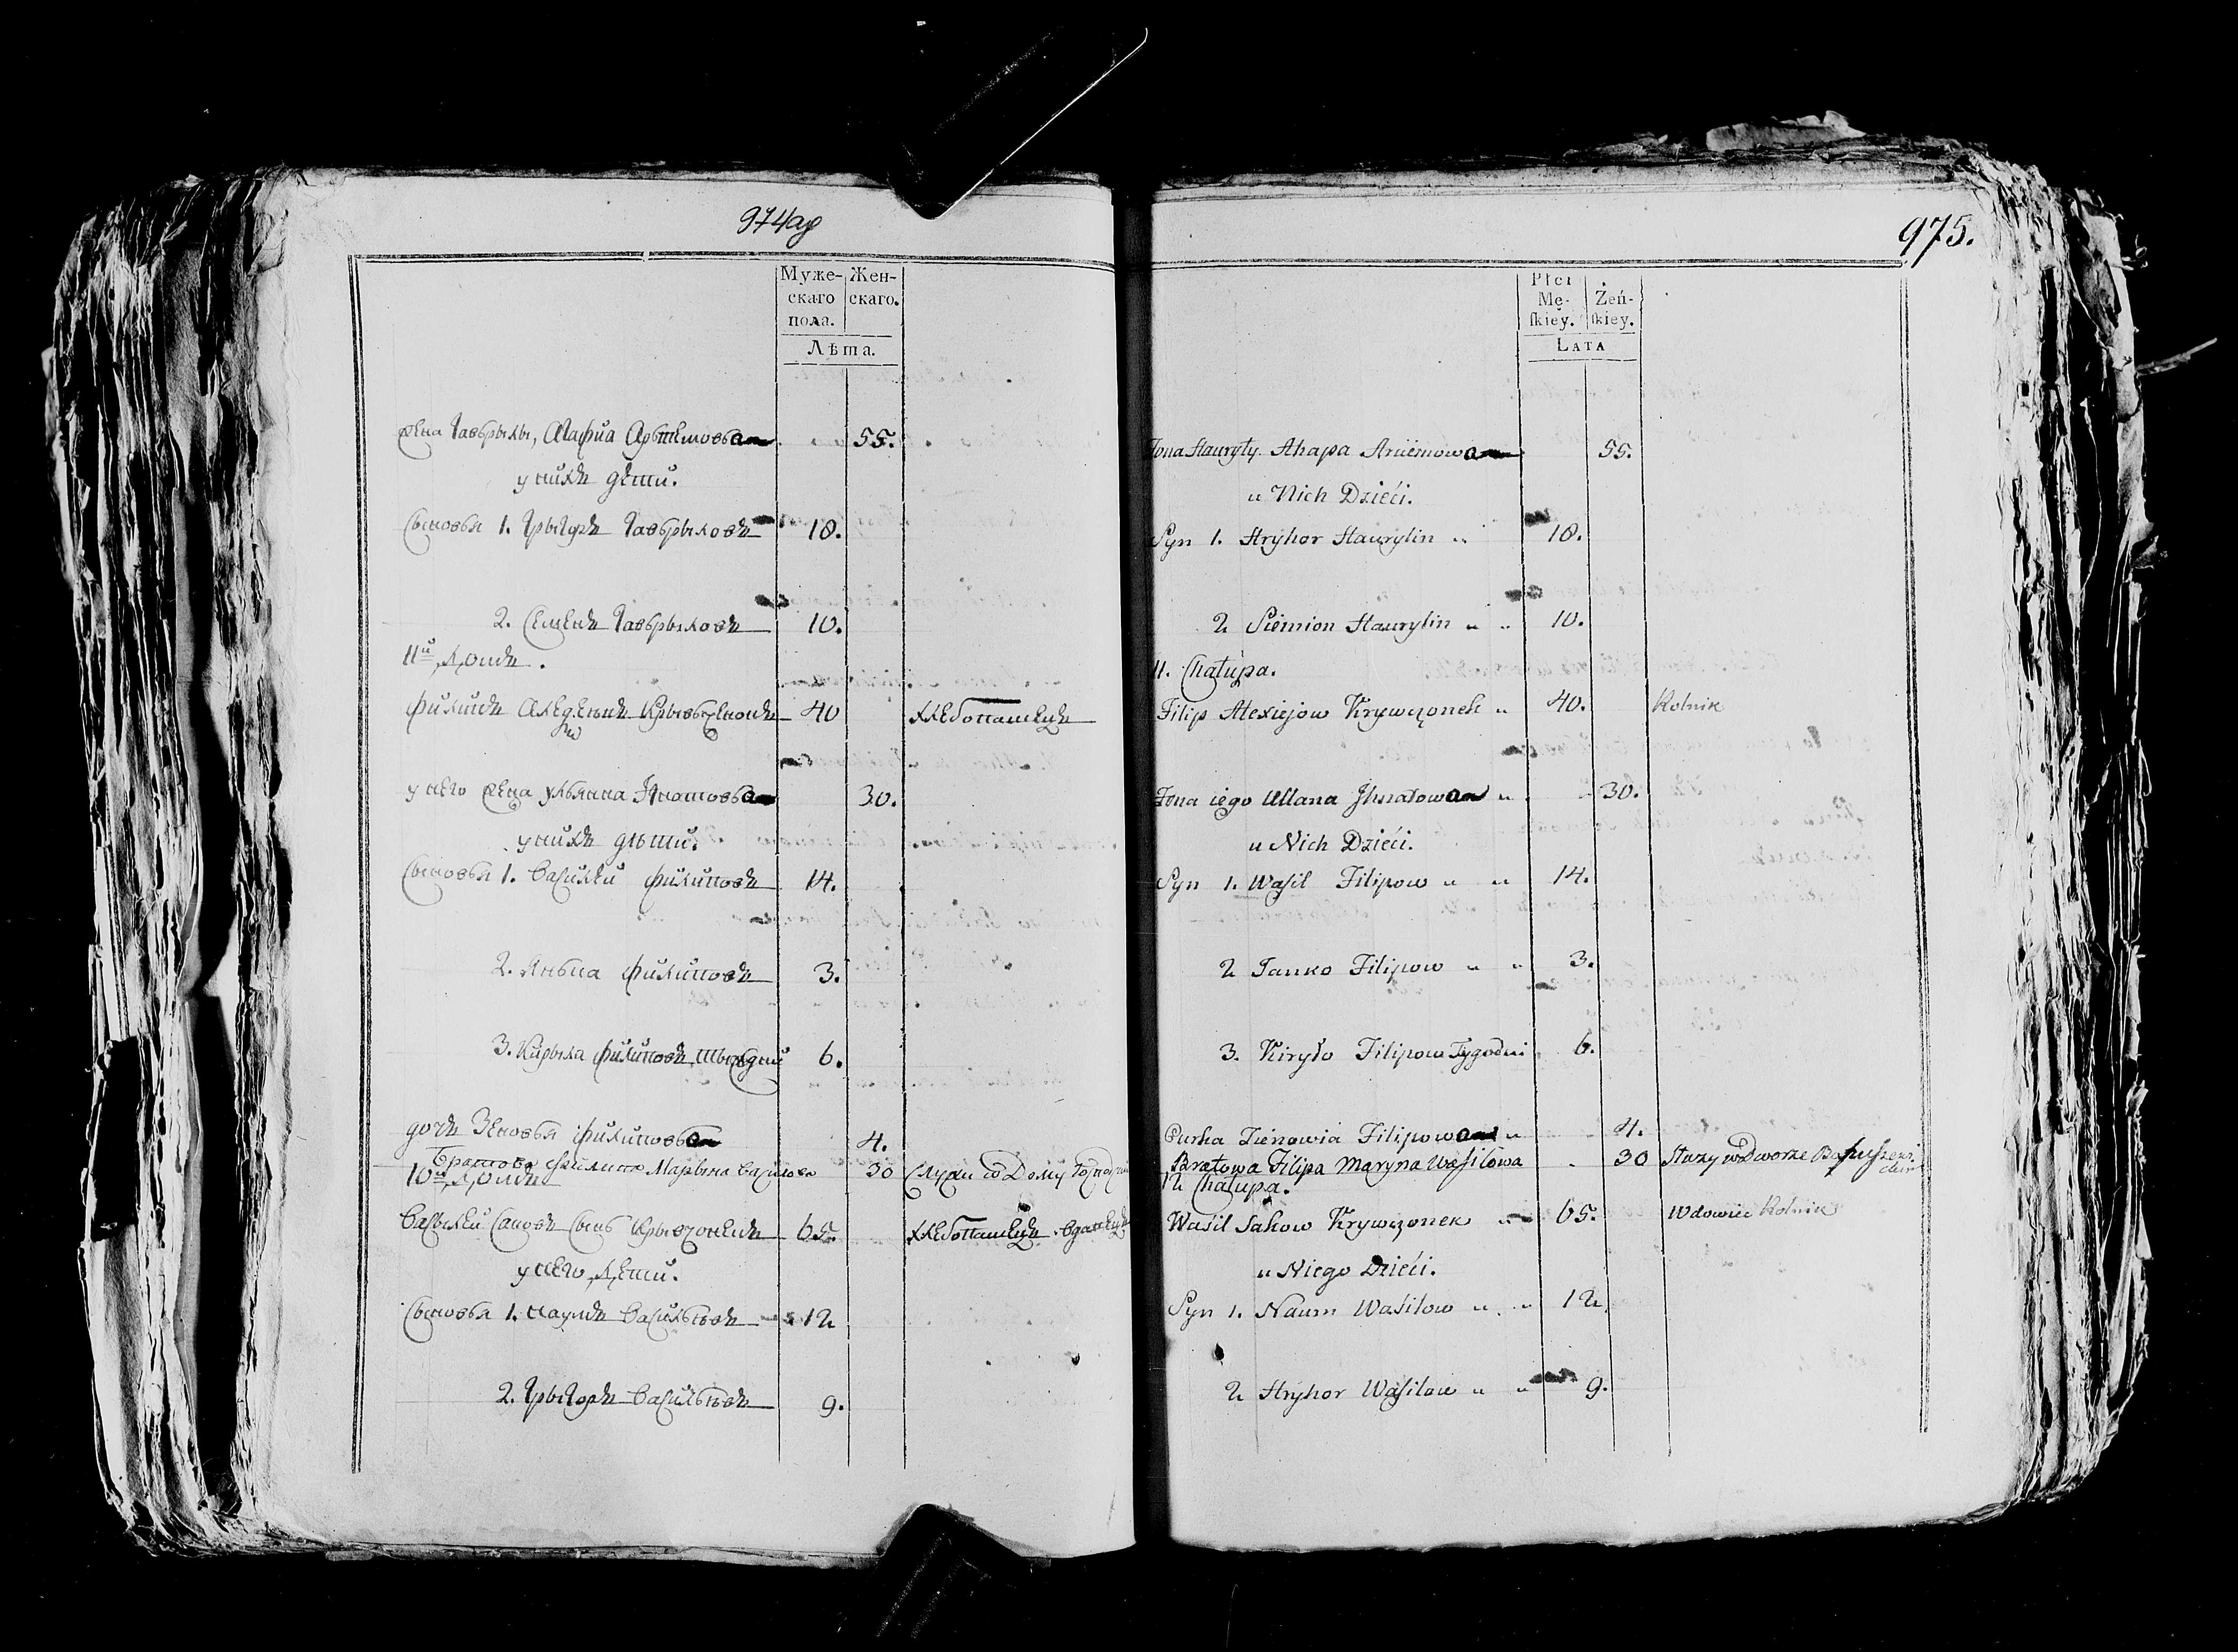 974ар
Муже-
скаго
пола.
Жен-
скаго.
Лѣта.
жена Гавврылы, Агафиа Артемовва 55.
у нихъ дѣти.
Сыновья 1. Грыгоръ Гаврыловъ 18.
2. Семенъ Гаврыловъ 10.
11й Домъ.
Филипъ Алексѣевъ Крывчонокъ 40 хлебопашецъ
у него жена Ульянна Игнатовва 30.
у нихъ дѣти.
Сыновья 1. Василий Филиповъ 14.
2. Янька Филиповъ 3.
3. Кирыла Филиповъ 6.
дочь Зеновья Филиповва 4.
братова Филипа Марына Василова 30
Домъ
Василий Сын Крывчонокъ 65. хлебопашецъ
у него дети.
Сыновья 1. Наумъ Васильевъ 12
2. Грыгоръ Васильевъ 9.
975.
Płci
Mę-
skiey.
Żeń-
skiey.
LATA
Żona Hauryły. Ahapa Arciemowa 55.
u Nich Dzieći.
Syn 1. Hryhor Haurylin " 18.
2 Siemion Haurylin " " 10.
11. Chałupa.
Filip Alexiejow Krywczonek " 40. Rolnik
Żona iego Ullana Ihnatowa " 30.
u Nich Dzieći.
Syn 1. Wasil Filipow " " 14.
2 Janko Filipow " " 3.
3. Kiryło Filipow Tygodni 6.
Curka Zienowia Filipowa " 4.
Bratowa Filipa Maryna Wasilowa 30 Służy w Dworze
12 Chałupa.
Wasil Sakow Krywczonek " 65. Wdowiec Rolnik
u Niego Dzieći.
Syn 1. Naum Wasilow " " 12
2 Hryhor Wasilow " " 9.